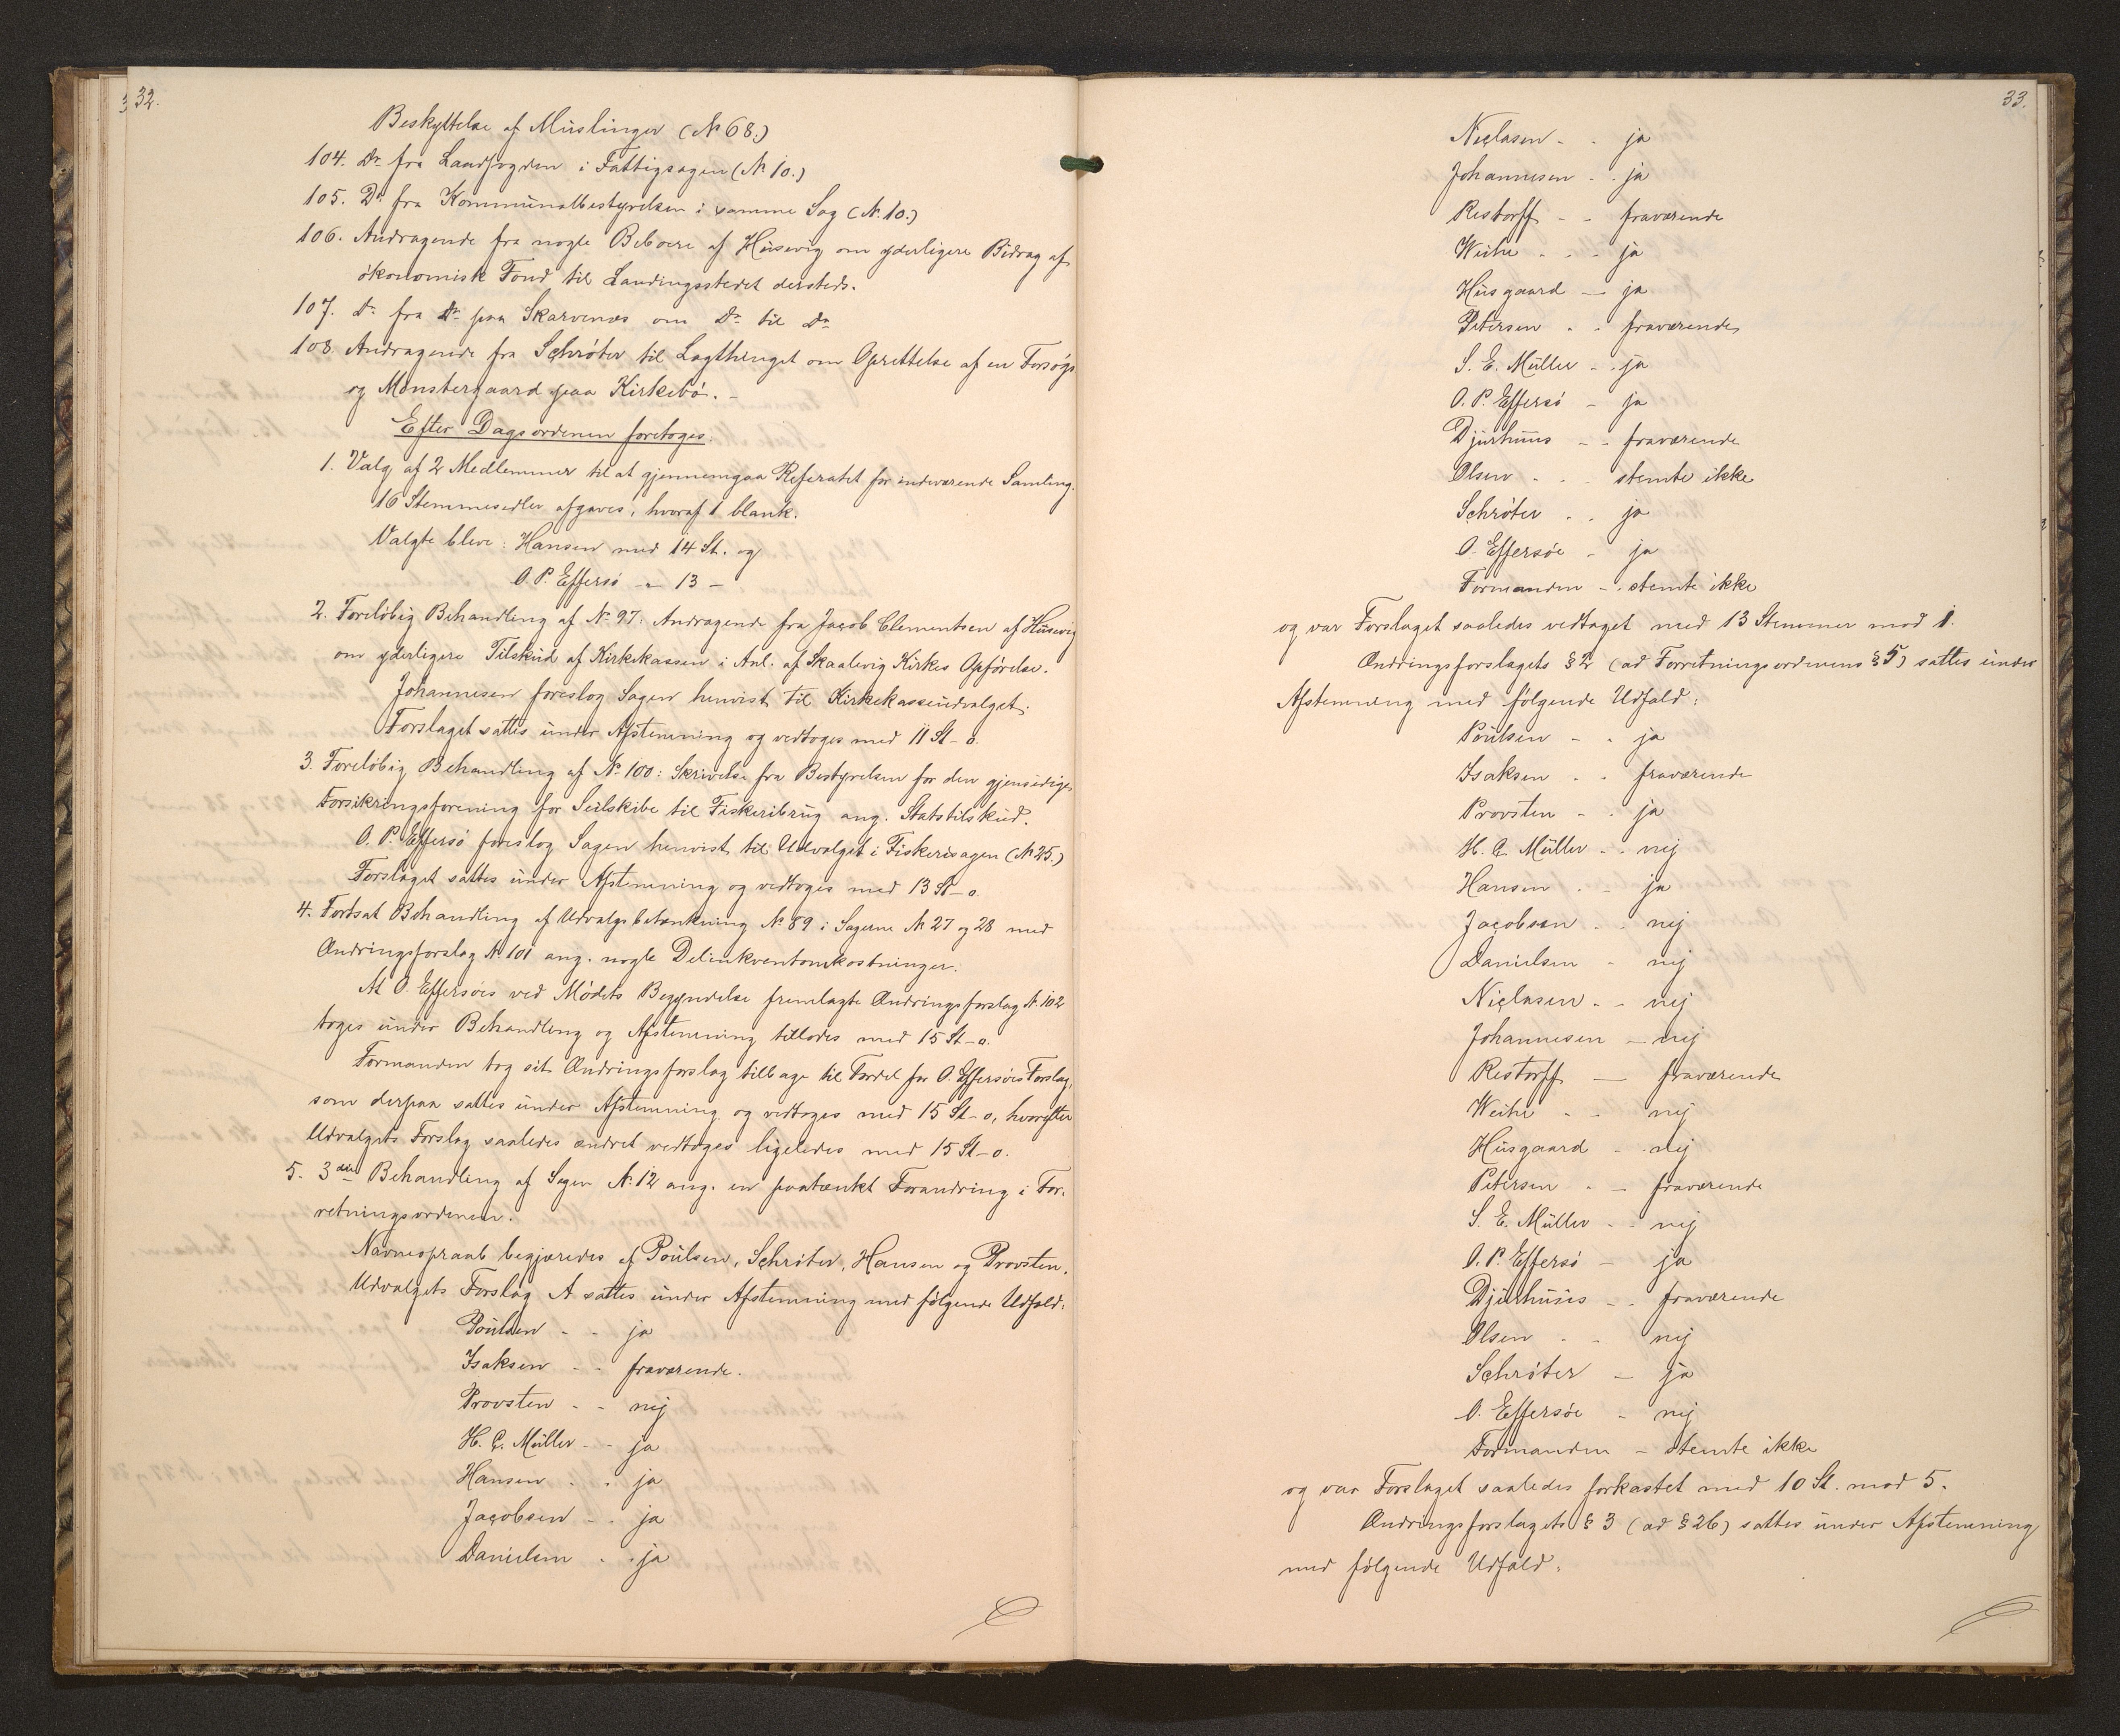 32.
Beskyttelse af Muslinger (№ 68.)
104. Do fra Landfogden i Fattigsagen (№ 10.)
105. Do fra Kommunalbestyrelsen i samme Sag (№ 10.)
106. Andragende fra nogle Beboere af Husevig om yderligere Bidrag af
økonomisk Fond til Landingsstedet dersteds.
107. Do fra Do paa Skarvenæs om Do til Do
108. Andragende fra Schrøter til Lagthinget om Oprettelse af en Forsøgs
og Mønstergaard paa Kirkebø. –
Efter Dagsordenen foretoges.
1. Valg af 2 Medlemmer til at gjennemgaa Referatet for indeværende Samling.
16 Stemmesedler afgaves, hvoraf 1 blank.
Valgte bleve: Hansen med 14 St. og
O. P. Effersø – 13 –
2. Foreløbig Behandling af № 97: Andragende fra Jacob Clementsen af Husevig
om yderligere Tilskud af Kirkekassen i Anl. af Skaalevig Kirkes Opførelse.
Johannesen foreslog Sagen henvist til Kirkekasseudvalget.
Forslaget sattes under Afstemning og vedtoges med 11 St – o.
3. Foreløbig Behandling af № 100: Skrivelse fra Bestyrelsen for den gjensidige
Forsikringsforening for Seilskibe til Fiskeribrug ang. Statstilskud.
O. P. Effersø foreslog Sagen henvist til Udvalget i Fiskerisagen (№ 25.)
Forslaget sattes under Afstemning og vedtoges med 13 St – o.
4. Fortsat Behandling af Udvalgsbetænkning № 89 i Sagerne № 27 og 28 med
Ændringsforslag № 101 ang. nogle Delinkventomkostninger.
At O. Effersøes ved Mødets Begyndelse fremlagte Ændringsforslag № 102
toges under Behandling og Afstemning tillodes med 15 St – o.
Formanden tog sit Ændringsforslag tilbage til Fordel for O. Effersøes Forslag,
som derpaa sattes under Afstemning og vedtoges med 15 St – o, hvorefter
Udvalgets Forslag saaledes ændret vedtoges ligeledes med 15 St – o.
5. 3die Behandling af Sagen № 12 ang. en paatænkt Forandring i For-
retningsordenen.
Navneopraab begjæredes af Poulsen, Schrøter, Hansen og Provsten.
Udvalgets Forslag A sattes under Afstemning med følgende Udfald:
Poulsen - - ja
Isaksen - - fraværende.
Provsten - - nej
H. C. Müller - - ja
Hansen - - ja
Jacobsen - - ja
Danielsen - - ja
33.
Niclasen - - ja
Johannesen - - ja
Restorff - - fraværende
Weihe - - - ja
Husgaard – ja
Petersen - - fraværende
S. E. Müller - - ja
O. P. Effersø – ja
Djurhuus - - fraværende
Olsen - - - stemte ikke
Schrøter - - ja
O. Effersøe - ja
Formanden - - stemte ikke
og var Forslaget saaledes vedtaget med 13 Stemmer mod 1.
Ændringsforslagets § 2 (ad Forretningsordenens § 5) sattes under
Afstemning med følgende Udfald:
Poulsen - - ja
Isaksen - - fraværende
Provsten - - ja
H. C. Müller - - nej
Hansen - - ja
Jacobsen - - nej
Danielsen - nej
Niclasen - - nej
Johannesen – nej
Restorff — fraværende
Weihe - - nej
Husgaard - - nej
Petersen - – fraværende
S. E. Müller - - nej
O. P. Effersø – ja
Djurhuus - - fraværende
Olsen - - nej
Schrøter – ja
O. Effersøe - nej
Formanden – stemte ikke
og var Forslaget saaledes forkastet med 10 St. mod 5.
Ændringsforslagets § 3 (ad § 26) sattes under Afstemning
med følgende Udfald: